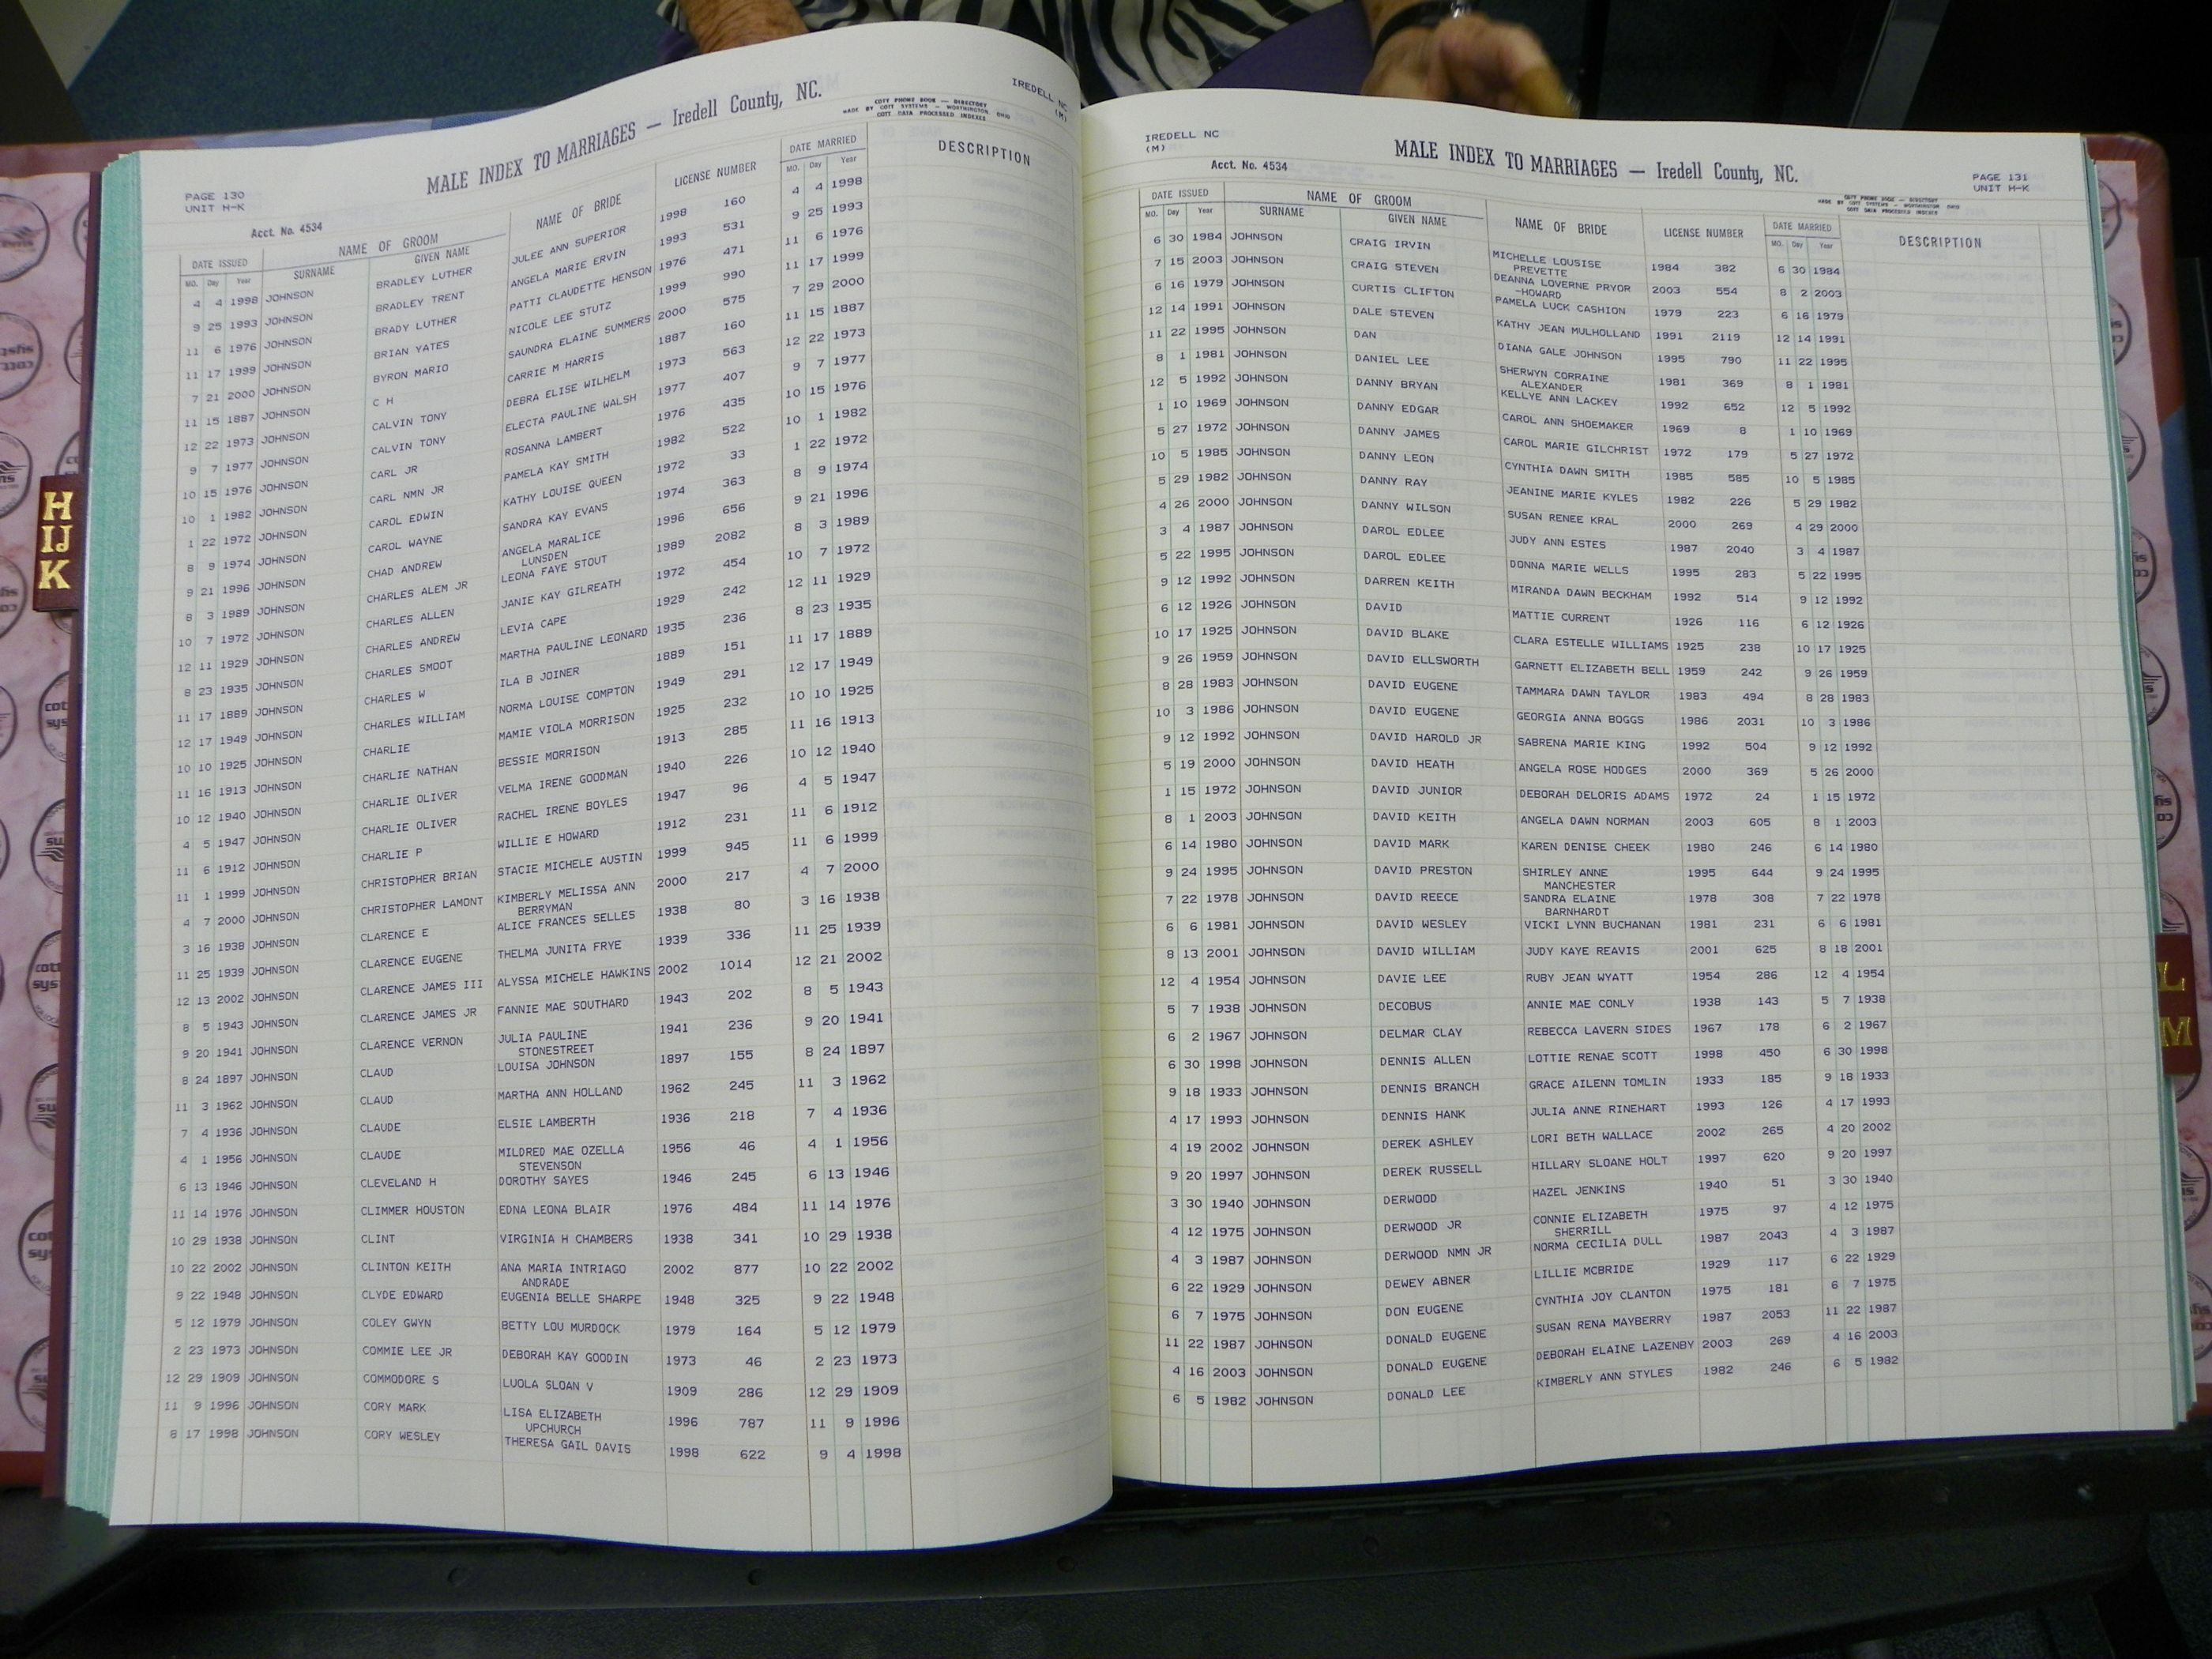 PAGE 130
UNIT H-K
MALE INDEX TO MARRIAGES — Iredell County, NC.
COTT PHONE BOOK — DIRECTORY
MADE BY COTT SYSTEMS — WORTHINGTON OHIO
COTT DATA PROCESSED INDEXES
IREDELL NC
(M)
Acct. No. 4534
DATE ISSUED NAME OF GROOM NAME OF BRIDE LICENSE NUMBER DATE MARRIED DESCRIPTION
MO. Day Year SURNAME GIVEN NAME MO. Day Year
4 4 1998 JOHNSON BRADLEY LUTHER JULEE ANN SUPERIOR 1998 160 4 4 1998
9 25 1993 JOHNSON BRADLEY TRENT ANGELA MARIE ERVIN 1993 531 9 25 1993
11 6 1976 JOHNSON BRADY LUTHER PATTI CLAUDETTE HENSON 1976 471 11 6 1976
11 17 1999 JOHNSON BRIAN YATES NICOLE LEE STUTZ 1999 990 11 17 1999
7 21 2000 JOHNSON BYRON MARIO SAUNDRA ELAINE SUMMERS 2000 575 7 29 2000
11 15 1887 JOHNSON C H CARRIE M HARRIS 1887 160 11 15 1887
12 22 1973 JOHNSON CALVIN TONY DEBRA ELISE WILHELM 1973 563 12 22 1973
9 7 1977 JOHNSON CALVIN TONY ELECTA PAULINE WALSH 1977 407 9 7 1977
10 15 1976 JOHNSON CARL JR ROSANNA LAMBERT 1976 435 10 15 1976
10 1 1982 JOHNSON CARL NMN JR PAMELA KAY SMITH 1982 522 10 1 1982
1 22 1972 JOHNSON CAROL EDWIN KATHY LOUISE QUEEN 1972 33 1 22 1972
8 9 1974 JOHNSON CAROL WAYNE SANDRA KAY EVANS 1974 363 8 9 1974
9 21 1996 JOHNSON CHAD ANDREW ANGELA MARALICE 1996 656 9 21 1996
LUNSDEN
8 3 1989 JOHNSON CHARLES ALEM JR LEONA FAYE STOUT 1989 2082 8 3 1989
10 7 1972 JOHNSON CHARLES ALLEN JANIE KAY GILREATH 1972 454 10 7 1972
12 11 1929 JOHNSON CHARLES ANDREW LEVIA CAPE 1929 242 12 11 1929
8 23 1935 JOHNSON CHARLES SMOOT MARTHA PAULINE LEONARD 1935 236 8 23 1935
11 17 1889 JOHNSON CHARLES W ILA B JOINER 1889 151 11 17 1889
12 17 1949 JOHNSON CHARLES WILLIAM NORMA LOUISE COMPTON 1949 291 12 17 1949
10 10 1925 JOHNSON CHARLIE MAMIE VIOLA MORRISON 1925 232 10 10 1925
11 16 1913 JOHNSON CHARLIE NATHAN BESSIE MORRISON 1913 285 11 16 1913
10 12 1940 JOHNSON CHARLIE OLIVER VELMA IRENE GOODMAN 1940 226 10 12 1940
4 5 1947 JOHNSON CHARLIE OLIVER RACHEL IRENE BOYLES 1947 96 4 5 1947
11 6 1912 JOHNSON CHARLIE P WILLIE E HOWARD 1912 231 11 6 1912
11 1 1999 JOHNSON CHRISTOPHER BRIAN STACIE MICHELE AUSTIN 1999 945 11 6 1999
4 7 2000 JOHNSON CHRISTOPHER LAMONT KIMBERLY MELISSA ANN 2000 217 4 7 2000
BERRYMAN
3 16 1938 JOHNSON CLARENCE E ALICE FRANCES SELLES 1938 80 3 16 1938
11 25 1939 JOHNSON CLARENCE EUGENE THELMA JUNITA FRYE 1939 336 11 25 1939
12 13 2002 JOHNSON CLARENCE JAMES III ALYSSA MICHELE HAWKINS 2002 1014 12 21 2002
8 5 1943 JOHNSON CLARENCE JAMES JR FANNIE MAE SOUTHARD 1943 202 8 5 1943
9 20 1941 JOHNSON CLARENCE VERNON JULIA PAULINE 1941 236 9 20 1941
STONESTREET
8 24 1897 JOHNSON CLAUD LOUISA JOHNSON 1897 155 8 24 1897
11 3 1962 JOHNSON CLAUD MARTHA ANN HOLLAND 1962 245 11 3 1962
7 4 1936 JOHNSON CLAUDE ELSIE LAMBERTH 1936 218 7 4 1936
4 1 1956 JOHNSON CLAUDE MILDRED MAE OZELLA 1956 46 4 1 1956
STEVENSON
6 13 1946 JOHNSON CLEVELAND H DOROTHY SAYES 1946 245 6 13 1946
11 14 1976 JOHNSON CLIMMER HOUSTON EDNA LEONA BLAIR 1976 484 11 14 1976
10 29 1938 JOHNSON CLINT VIRGINIA H CHAMBERS 1938 341 10 29 1938
10 22 2002 JOHNSON CLINTON KEITH ANA MARIA INTRIAGO 2002 877 10 22 2002
ANDRADE
9 22 1948 JOHNSON CLYDE EDWARD EUGENIA BELLE SHARPE 1948 325 9 22 1948
5 12 1979 JOHNSON COLEY GWYN BETTY LOU MURDOCK 1979 164 5 12 1979
2 23 1973 JOHNSON COMMIE LEE JR DEBORAH KAY GOODIN 1973 46 2 23 1973
12 29 1909 JOHNSON COMMODORE S LUOLA SLOAN V 1909 286 12 29 1909
11 9 1996 JOHNSON CORY MARK LISA ELIZABETH 1996 787 11 9 1996
UPCHURCH
8 17 1998 JOHNSON CORY WESLEY THERESA GAIL DAVIS 1998 622 9 4 1998
IREDELL NC
(M)
Acct. No. 4534
MALE INDEX TO MARRIAGES — Iredell County, NC.
PAGE 131
UNIT H-K
COTT PHONE BOOK — DIRECTORY
MADE BY COTT SYSTEMS — WORTHINGTON OHIO
COTT DATA PROCESSED INDEXES
DATE ISSUED NAME OF GROOM NAME OF BRIDE LICENSE NUMBER DATE MARRIED DESCRIPTION
MO. Day Year SURNAME GIVEN NAME MO. Day Year
6 30 1984 JOHNSON CRAIG IRVIN MICHELLE LOUSISE 1984 382 6 30 1984
PREVETTE
7 15 2003 JOHNSON CRAIG STEVEN DEANNA LOVERNE PRYOR 2003 554 8 2 2003
-HOWARD
6 16 1979 JOHNSON CURTIS CLIFTON PAMELA LUCK CASHION 1979 223 6 16 1979
12 14 1991 JOHNSON DALE STEVEN KATHY JEAN MULHOLLAND 1991 2119 12 14 1991
11 22 1995 JOHNSON DAN DIANA GALE JOHNSON 1995 790 11 22 1995
8 1 1981 JOHNSON DANIEL LEE SHERWYN CORRAINE 1981 369 8 1 1981
ALEXANDER
12 5 1992 JOHNSON DANNY BRYAN KELLYE ANN LACKEY 1992 652 12 5 1992
1 10 1969 JOHNSON DANNY EDGAR CAROL ANN SHOEMAKER 1969 8 1 10 1969
5 27 1972 JOHNSON DANNY JAMES CAROL MARIE GILCHRIST 1972 179 5 27 1972
10 5 1985 JOHNSON DANNY LEON CYNTHIA DAWN SMITH 1985 585 10 5 1985
5 29 1982 JOHNSON DANNY RAY JEANINE MARIE KYLES 1982 226 5 29 1982
4 26 2000 JOHNSON DANNY WILSON SUSAN RENEE KRAL 2000 269 4 29 2000
3 4 1987 JOHNSON DAROL EDLEE JUDY ANN ESTES 1987 2040 3 4 1987
5 22 1995 JOHNSON DAROL EDLEE DONNA MARIE WELLS 1995 283 5 22 1995
9 12 1992 JOHNSON DARREN KEITH MIRANDA DAWN BECKHAM 1992 514 9 12 1992
6 12 1926 JOHNSON DAVID MATTIE CURRENT 1926 116 6 12 1926
10 17 1925 JOHNSON DAVID BLAKE CLARA ESTELLE WILLIAMS 1925 238 10 17 1925
9 26 1959 JOHNSON DAVID ELLSWORTH GARNETT ELIZABETH BELL 1959 242 9 26 1959
8 28 1983 JOHNSON DAVID EUGENE TAMMARA DAWN TAYLOR 1983 494 8 28 1983
10 3 1986 JOHNSON DAVID EUGENE GEORGIA ANNA BOGGS 1986 2031 10 3 1986
9 12 1992 JOHNSON DAVID HAROLD JR SABRENA MARIE KING 1992 504 9 12 1992
5 19 2000 JOHNSON DAVID HEATH ANGELA ROSE HODGES 2000 369 5 26 2000
1 15 1972 JOHNSON DAVID JUNIOR DEBORAH DELORIS ADAMS 1972 24 1 15 1972
8 1 2003 JOHNSON DAVID KEITH ANGELA DAWN NORMAN 2003 605 8 1 2003
6 14 1980 JOHNSON DAVID MARK KAREN DENISE CHEEK 1980 246 6 14 1980
9 24 1995 JOHNSON DAVID PRESTON SHIRLEY ANNE 1995 644 9 24 1995
MANCHESTER
7 22 1978 JOHNSON DAVID REECE SANDRA ELAINE 1978 308 7 22 1978
BARNHARDT
6 6 1981 JOHNSON DAVID WESLEY VICKI LYNN BUCHANAN 1981 231 6 6 1981
8 13 2001 JOHNSON DAVID WILLIAM JUDY KAYE REAVIS 2001 625 8 18 2001
12 4 1954 JOHNSON DAVIE LEE RUBY JEAN WYATT 1954 286 12 4 1954
5 7 1938 JOHNSON DECOBUS ANNIE MAE CONLY 1938 143 5 7 1938
6 2 1967 JOHNSON DELMAR CLAY REBECCA LAVERN SIDES 1967 178 6 2 1967
6 30 1998 JOHNSON DENNIS ALLEN LOTTIE RENAE SCOTT 1998 450 6 30 1998
9 18 1933 JOHNSON DENNIS BRANCH GRACE AILENN TOMLIN 1933 185 9 18 1933
4 17 1993 JOHNSON DENNIS HANK JULIA ANNE RINEHART 1993 126 4 17 1993
4 19 2002 JOHNSON DEREK ASHLEY LORI BETH WALLACE 2002 265 4 20 2002
9 20 1997 JOHNSON DEREK RUSSELL HILLARY SLOANE HOLT 1997 620 9 20 1997
3 30 1940 JOHNSON DERWOOD HAZEL JENKINS 1940 51 3 30 1940
4 12 1975 JOHNSON DERWOOD JR CONNIE ELIZABETH 1975 97 4 12 1975
SHERRILL
4 3 1987 JOHNSON DERWOOD NMN JR NORMA CECILIA DULL 1987 2043 4 3 1987
6 22 1929 JOHNSON DEWEY ABNER LILLIE MCBRIDE 1929 117 6 22 1929
6 7 1975 JOHNSON DON EUGENE CYNTHIA JOY CLANTON 1975 181 6 7 1975
11 22 1987 JOHNSON DONALD EUGENE SUSAN RENA MAYBERRY 1987 2053 11 22 1987
4 16 2003 JOHNSON DONALD EUGENE DEBORAH ELAINE LAZENBY 2003 269 4 16 2003
6 5 1982 JOHNSON DONALD LEE KIMBERLY ANN STYLES 1982 246 6 5 1982
H
IJ
K
L
M